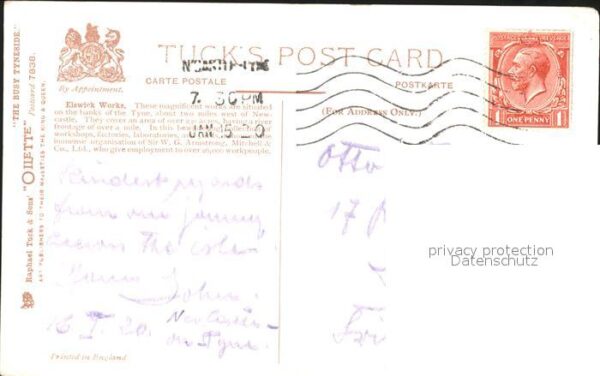 TUCK'S POST CARD
CARTE POSTALE
POSTKARTE
By Appointment.
(FOR ADDRESS ONLY.)
Raphael Tuck & Sons' "OILETTE" "THE BUSY TYNESIDE." Postcard 7838.
ART PUBLISHERS TO THEIR MAJESTIES THE KING & QUEEN.
Elswick Works. These magnificent works are situated
on the banks of the Tyne, about two miles west of New-
castle. They cover an area of over acres, having a river
frontage of over a mile. In this are
workshops, factories, laboratories,
immense organisation of Sir W. G. Armstrong, Mitchell &
Co., Ltd., who give employment to over workpeople.
7. 30PM
JAN 15 20
ONE PENNY
Kindest regards
from our journey
across the
Yours
John.
16.I.20. Newcastle-
on Tyne.
Otto
17
privacy protection
Datenschutz
Printed in England